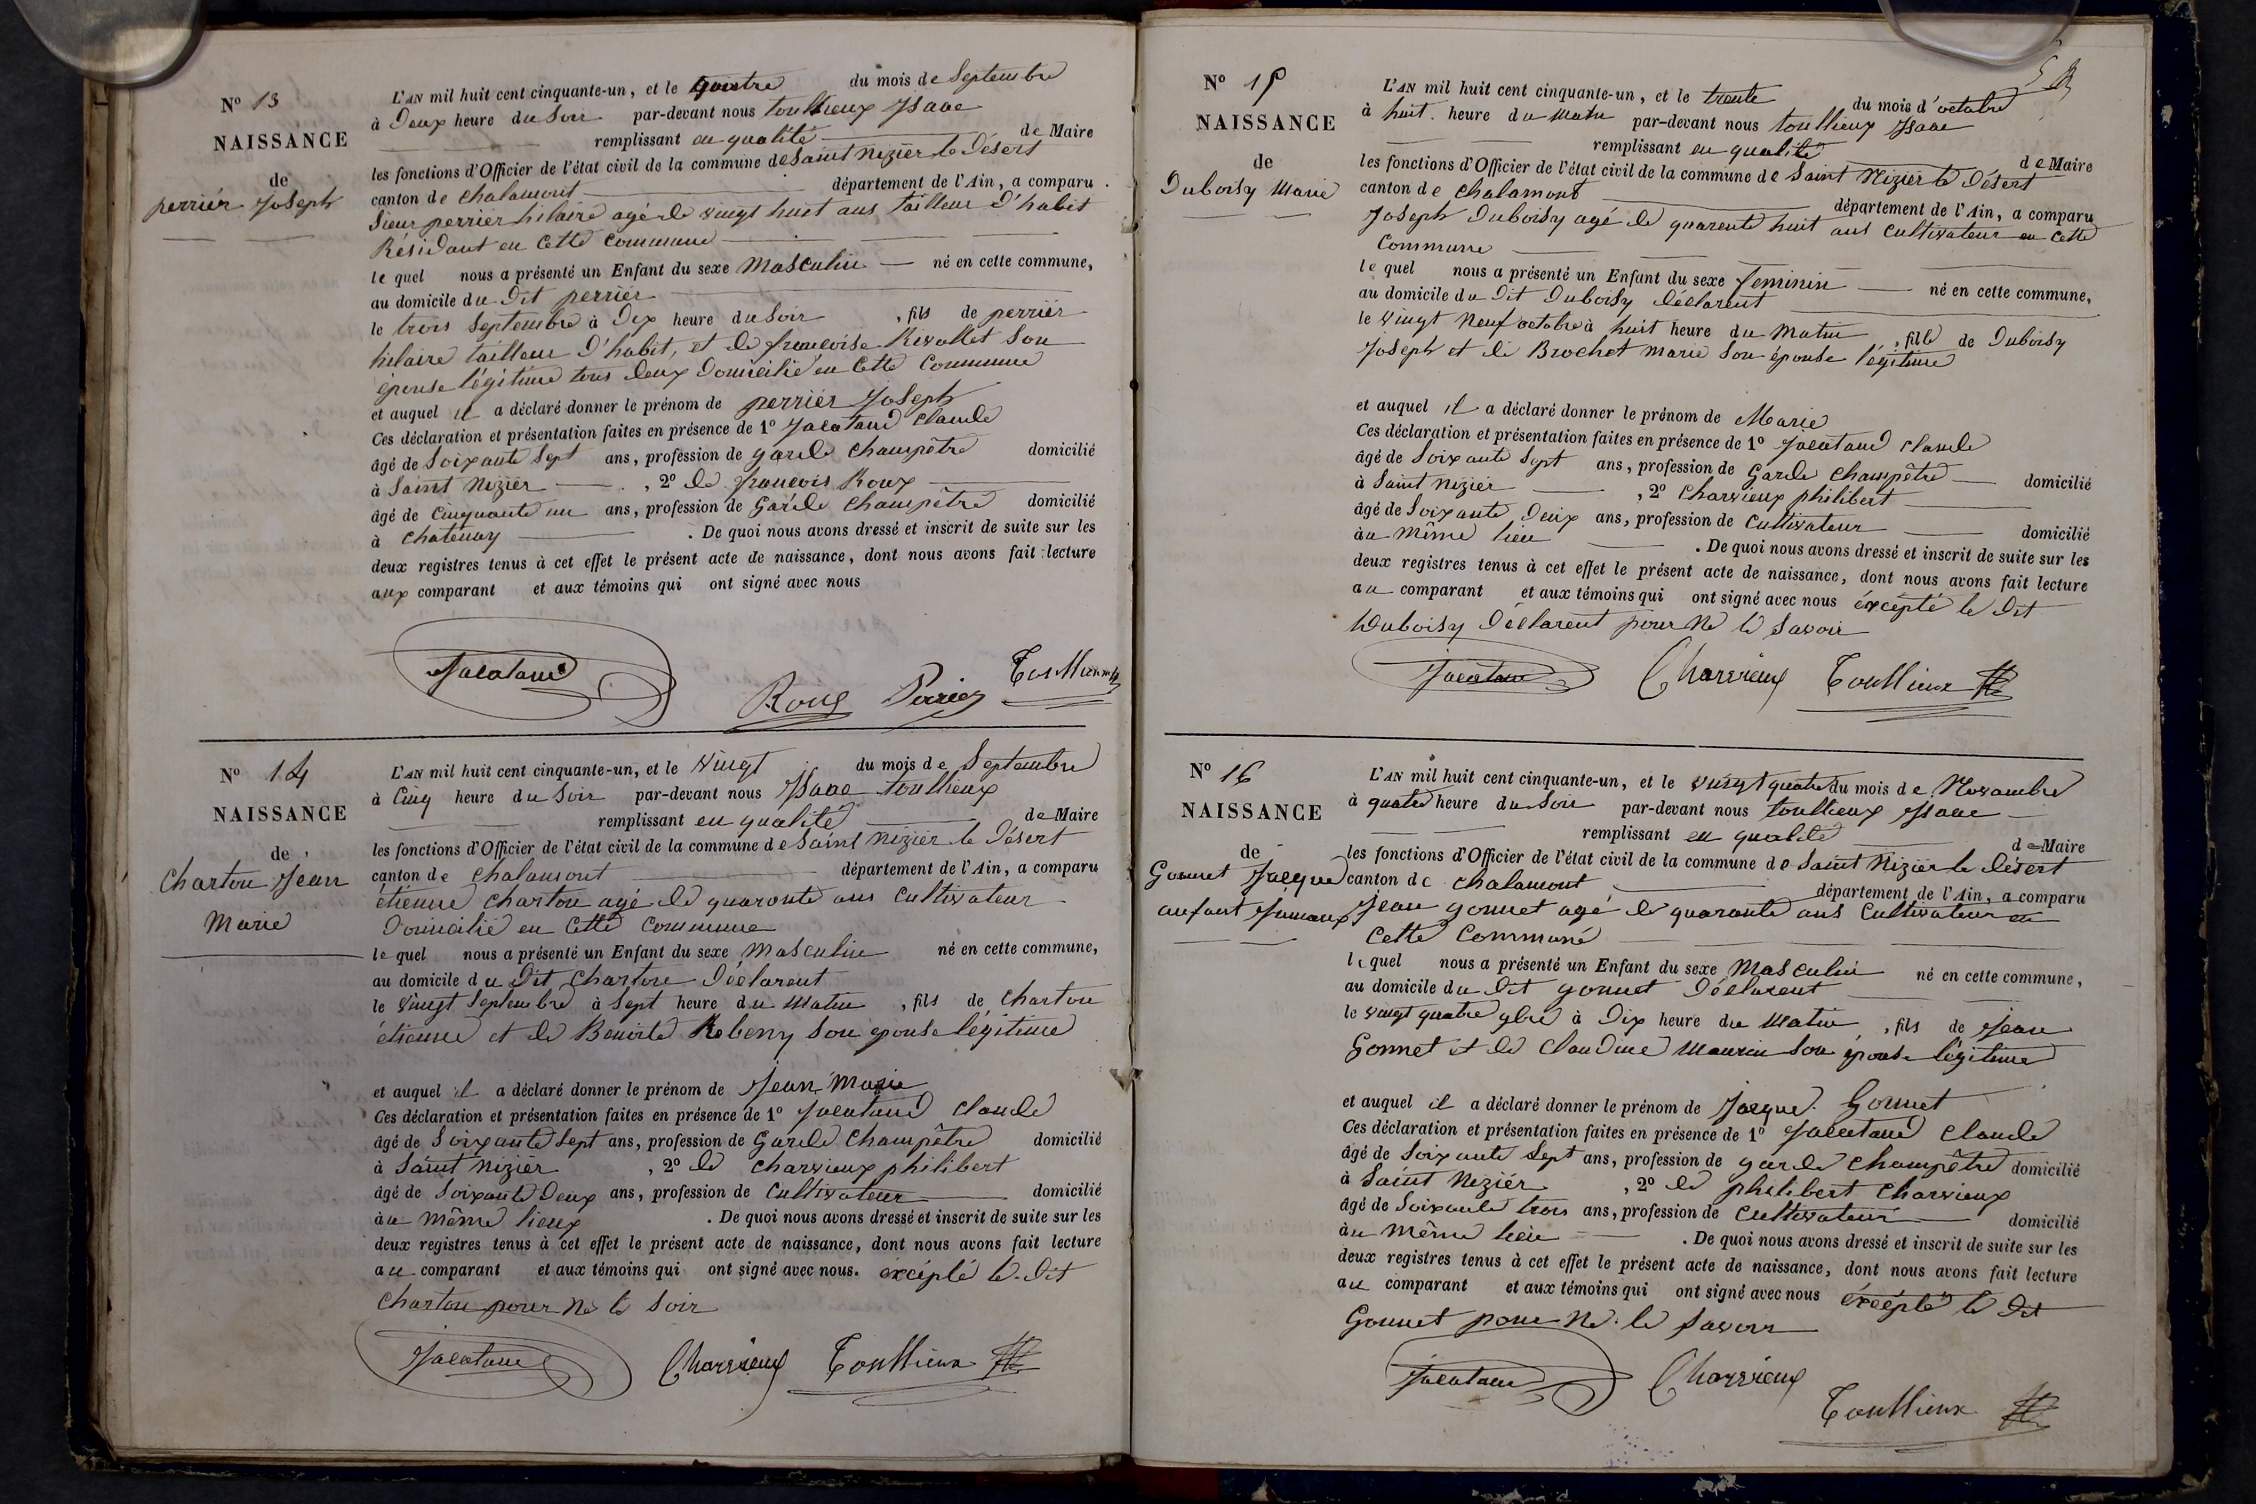 N° 13
NAISSANCE
de
perriér Joseph
L'AN mil huit cent cinquante-un, et le quatre du mois de Septembre
à Deux heure du Soir par-devant nous toullieux Isaac
remplissant en qualité de Maire
les fonctions d'Officier de l'état civil de la commune de Saint Nizier le Désert
canton de chalamont département de l'Ain, a comparu
Sieur perriér hilaire agé de vingt huit ans tailleur D'habit
Résidant en cette commune
le quel nous a présenté un Enfant du sexe Masculin né en cette commune,
au domicile du Dit perriér
le trois Septembre à Dix heure du Soir , fils de perriér
hilaire tailleur D'habit, et de francoise Revollet Son
épouse légitime tous deux Domicilié en Cette Commune
et auquel il a déclaré donner le prénom de perriér Joseph
Ces déclaration et présentation faites en présence de 1° Jacatand Claude
âgé de Soixante Sept ans, profession de garde Champêtre domicilié
à Saint Nizièr , 2° de francois Roux
âgé de Cinquante un ans, profession de Garde Champêtre domicilié
à chatenay . De quoi nous avons dressé et inscrit de suite sur les
deux registres tenus à cet effet le présent acte de naissance, dont nous avons fait lecture
aux comparant et aux témoins qui ont signé avec nous
Jacatand
Roux Perrier Toullieux
N° 14
NAISSANCE
de
Charton Jean
Marie
L'AN mil huit cent cinquante-un, et le vingt du mois de Septembre
à Cinq heure du Soir par-devant nous Isaac toullieux
remplissant en qualité de Maire
les fonctions d'Officier de l'état civil de la commune de Saint Nizier le Désert
canton de chalamont département de l'Ain, a comparu
étienne charton agé de quarante ans Cultivateur
Domicilié en Cette Commune
le quel nous a présenté un Enfant du sexe Masculin né en cette commune,
au domicile du Dit Charton Déclarent
le vingt Septembre à Sept heure du Matin , fils de Charton
étienne et de Benoite Rebeny Son épouse légitime
et auquel il a déclaré donner le prénom de Jean Marie
Ces déclaration et présentation faites en présence de 1° Jacatand Claude
âgé de Soixante Sept ans, profession de Garde Champêtre domicilié
à Saint Nizièr , 2° de charvieux philibert
âgé de Soixante Deux ans, profession de Cultivateur domicilié
à au même lieux . De quoi nous avons dressé et inscrit de suite sur les
deux registres tenus à cet effet le présent acte de naissance, dont nous avons fait lecture
au comparant et aux témoins qui ont signé avec nous. excépté le Dit
Charton pour ne le Soir
Jacatand Charvieux Toullieux
N° 15
NAISSANCE
de
Duboisy Marie
L'AN mil huit cent cinquante-un, et le trente du mois d'octobre
à huit heure du Matin par-devant nous toullieux Isaac
remplissant en qualité de Maire
les fonctions d'Officier de l'état civil de la commune de Saint Nizièr le Désert
canton de chalamont département de l'Ain, a comparu
Joseph Duboisy agé de quarente huit ans Cultivateur en Cette
Commune
le quel nous a présenté un Enfant du sexe feminin né en cette commune,
au domicile du Dit Duboisy Déclarent
le vingt Neuf octobre à huit heure du Matin , fille de Duboisy
Joseph et de Brochet Marie Son épouse légitime
et auquel il a déclaré donner le prénom de Marie
Ces déclaration et présentation faites en présence de 1° Jacatand Claude
âgé de Soixante Sept ans, profession de Garde Champêtre domicilié
à Saint Nizièr , 2° Charvieux philibert
âgé de Soixante Deux ans, profession de Cultivateur domicilié
à au même lieu . De quoi nous avons dressé et inscrit de suite sur les
deux registres tenus à cet effet le présent acte de naissance, dont nous avons fait lecture
au comparant et aux témoins qui ont signé avec nous éxcépté le Dit
Duboisy Déclarent pour ne le Savoir
Jacatand Charvieux Toullieux
N° 16
NAISSANCE
de
Gonnet Jacque
anfant Jumaux
L'AN mil huit cent cinquante-un, et le vingt quatre du mois de Novambre
à quatre heure du Soir par-devant nous toullieux Isaac
remplissant en qualité de Maire
les fonctions d'Officier de l'état civil de la commune de Saint Nizièr le Désert
canton de Chalamont département de l'Ain, a comparu
Jean gonnet agé de quarante ans Cultivateur en
Cette Communé
le quel nous a présenté un Enfant du sexe Masculin né en cette commune,
au domicile du Dit gonnet Déclarent
le vingt quatre 9bre à Dix heure du Matin , fils de Jean
Gonnet et de Claudine Maurin Son épouse légitime
et auquel il a déclaré donner le prénom de Jacque Gonnet
Ces déclaration et présentation faites en présence de 1° Jacatand Claude
âgé de Soixante Sept ans, profession de garde Champêtre domicilié
à Saint Nizièr , 2° de philibert Charvieux
âgé de Soixante trois ans, profession de Cultivateur domicilié
à au même lieu . De quoi nous avons dressé et inscrit de suite sur les
deux registres tenus à cet effet le présent acte de naissance, dont nous avons fait lecture
au comparant et aux témoins qui ont signé avec nous éxcépté le Dit
Gonnet pour Ne le Savoir
Jacatand Charvieux
Toullieux